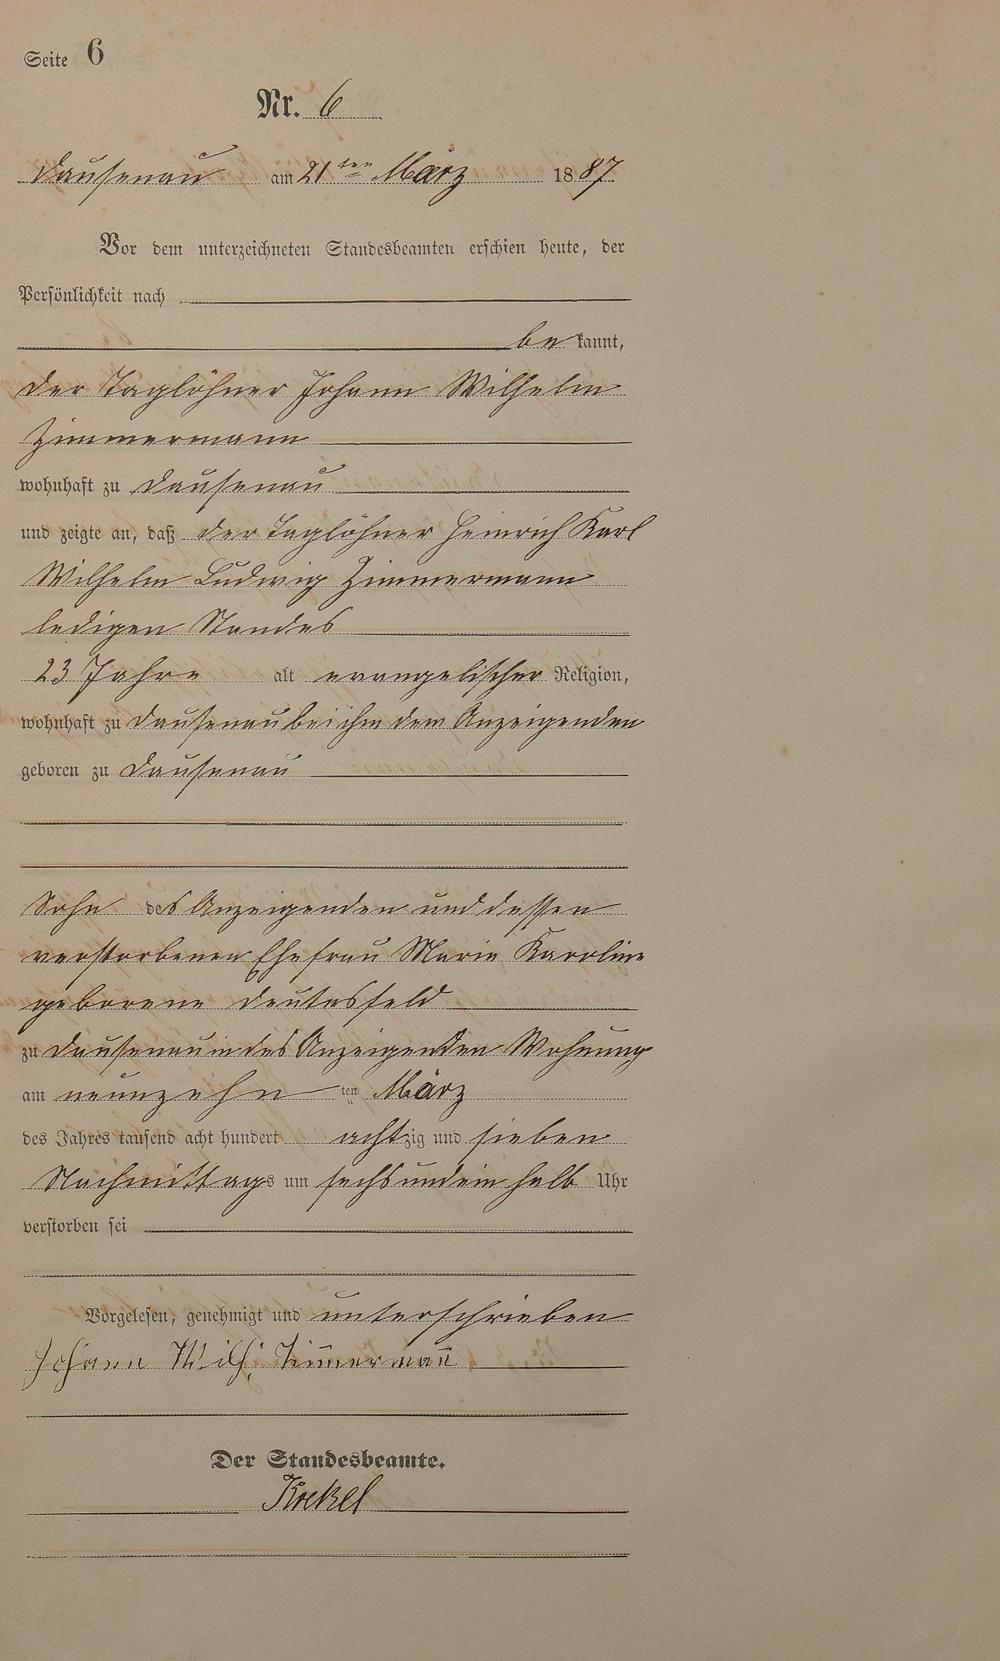 Seite 6
Nr. 6
Dausenau am 21ten März 1887
Vor dem unterzeichneten Standesbeamten erschien heute, der
Persönlichkeit nach
be kannt,
der Taglöhner Johann Wilhelm
Zimmermann
wohnhaft zu Dausenau
und zeigte an, daß der Taglöhner Heinrich Karl
Wilhelm Ludwig Zimmermann
ledigen Standes
23 Jahre alt evangelischer Religion,
wohnhaft zu Dausenau bei ihm dem Anzeigenden
geboren zu Dausenau
Sohn des Anzeigenden und dessen
verstorbenen Ehefrau Marie Karoline
geborene Deutesfeld
zu Dausenau in des Anzeigenden Wohnung
am neunzehn ten März
des Jahres tausend acht hundert achtzig und sieben
Nachmittags um sechs und ein halb Uhr
verstorben sei
Vorgelesen, genehmigt und unterschrieben
Johann Wilh. Zim̄erman̄
Der Standesbeamte.